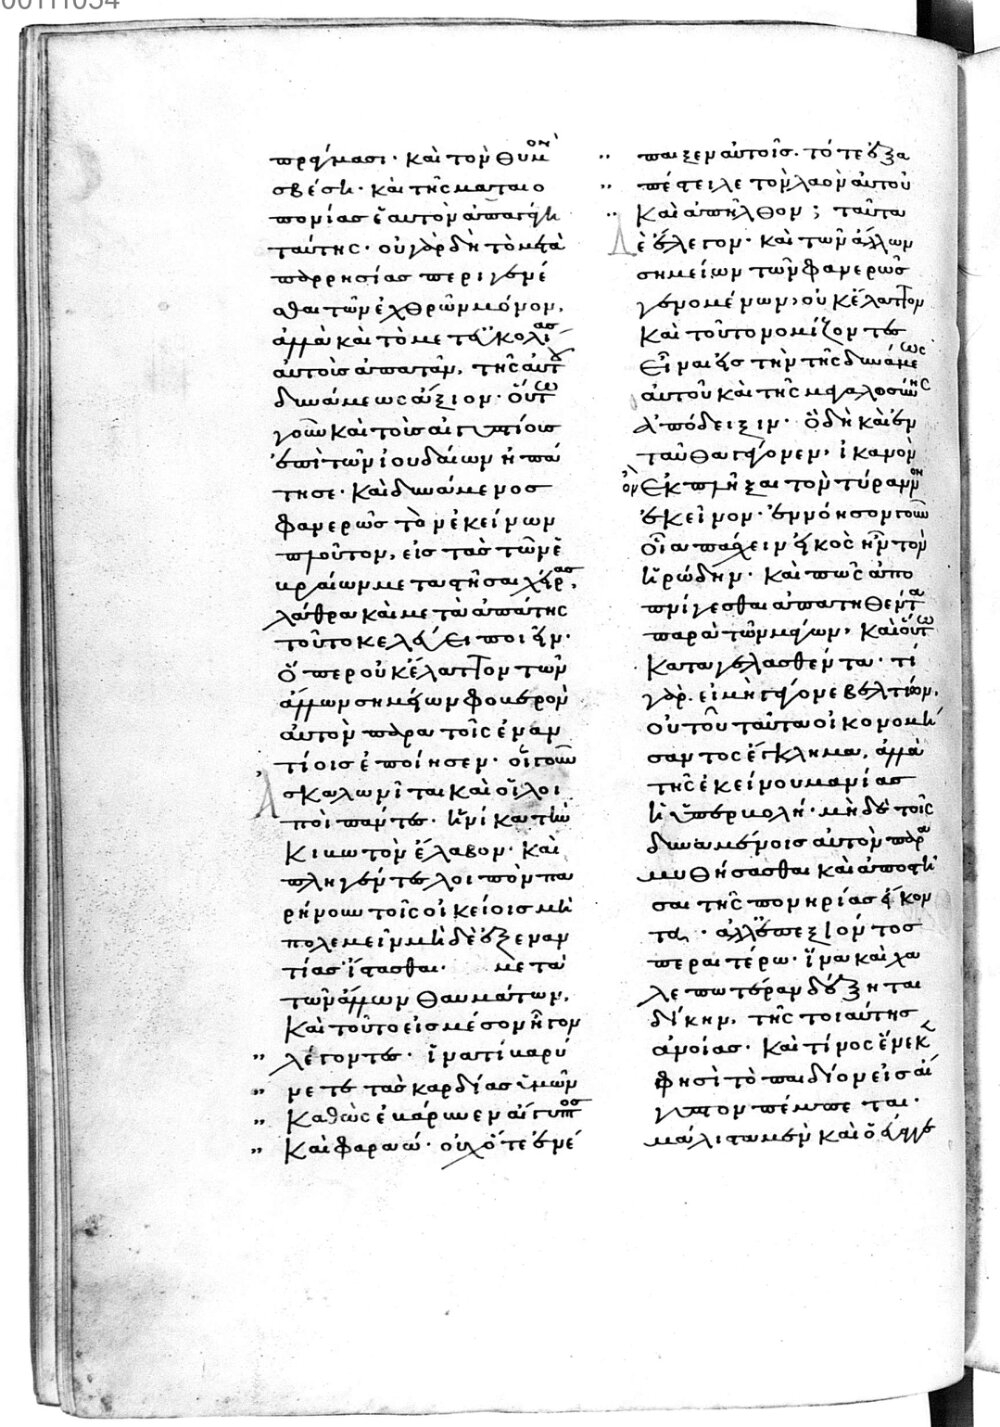 00111054
πράγμασι· καὶ τὸν θυμὸν
σβέση· καὶ τῆς ματαιο
πονίας ἑαυτὸν ἀπαγάγη
ταύτης· οὐ γὰρ δὴ τὸ μετὰ
παρρησίας περιγενέ
σθαι τῶν ἐχθρῶν μόνον,
ἀλλὰ καὶ τὸ μετ' εὐκολίας
αὐτοὺς ἀπατᾶν, τῆς αὐτοῦ
δυνάμεως ἄξιον· οὕτω
γοῦν καὶ τοὺς αἰγυπτίους
ἐπὶ τῶν ἰουδαίων ἠπά
τησε· καὶ δυνάμενος
φανερῶς τὸν ἐκείνων
πλοῦτον, εἰς τὰς τῶν ἑ
βραίων μεταστῆσαι χεῖρας,
λάθρα καὶ μετὰ ἀπάτης
τοῦτο κελεύει ποιεῖν·
ὅπερ οὐκ ἔλαττον τῶν
ἄλλων σημείων φοβερὸν
αὐτὸν παρὰ τοῖς ἐναν
τίοις ἐποίησεν· οἱ γοῦν
ἀσκαλωνῖται καὶ οἱ λοι
ποὶ πάντες· ἡνίκα τὴν
κιβωτὸν ἔλαβον· καὶ
πληγέντες λοιπὸν πα
ρήνουν τοῖς οἰκείοις μὴ
πολεμεῖν μηδὲ ἐξεναν
τίας ἵστασθαι· μετὰ
τῶν ἄλλων θαυμάτων,
καὶ τοῦτο εἰς μέσον ἦγον
λέγοντες· ἱνατί βαρύ
νετε τὰς καρδίας ὑμῶν
καθὼς ἐβάρυνεν αἴγυπτος
καὶ φαραώ· οὐχ ὅτε ἐνέ
παιξεν αὐτοῖς. τότε ἐξα
πέστειλε τὸν λαὸν αὐτοῦ
καὶ ἀπῆλθον; ταῦτα
δὲ ἔλεγον· καὶ τῶν ἄλλων
σημείων τῶν φανερῶς
γενομένων, οὐκ ἔλαττον
καὶ τοῦτο νομίζοντες
εἶναι εἰς τὴν τῆς δυνάμεως
αὐτοῦ καὶ τῆς μεγαλοσύνης
ἀπόδειξιν· ὃ δὴ καὶ ἐν
ταῦθα γέγονεν, ἱκανὸν
ὂν ἐκπλῆξαι τὸν τύραννον
ἐκεῖνον· ἐννόησον γοῦν
οἷα πάσχειν εἰκὸς ἦν τὸν
ἡρώδην· καὶ πῶς ἀπο
πνίγεσθαι ἀπατηθέντα
παρὰ τῶν μάγων, καὶ οὕτω
καταγελασθέντα· τί
γὰρ. εἰ μὴ γέγονε βελτίων,
οὐ τοῦ ταῦτα οἰκονομή
σαντος ἔγκλημα, ἀλλὰ
τῆς ἐκείνου μανίας
ἡ ὑπερβολή· μηδὲ τοῖς
δυναμένοις αὐτὸν παρα
μυθήσασθαι καὶ ἀποστῆ
σαι τῆς πονηρίας εἴκον
τος· ἀλλ' ἐπεξιόντος
περαιτέρω· ἵνα καὶ χα
λεπωτέραν δέξηται
δίκην, τῆς τοιαύτης
ἀνοίας· καὶ τίνος ἕνεκεν
φησὶ τὸ παιδίον εἰς αἴ
γυπτον πέμπεται·
μάλιστα μὲν καὶ ὁ εὐαγγε